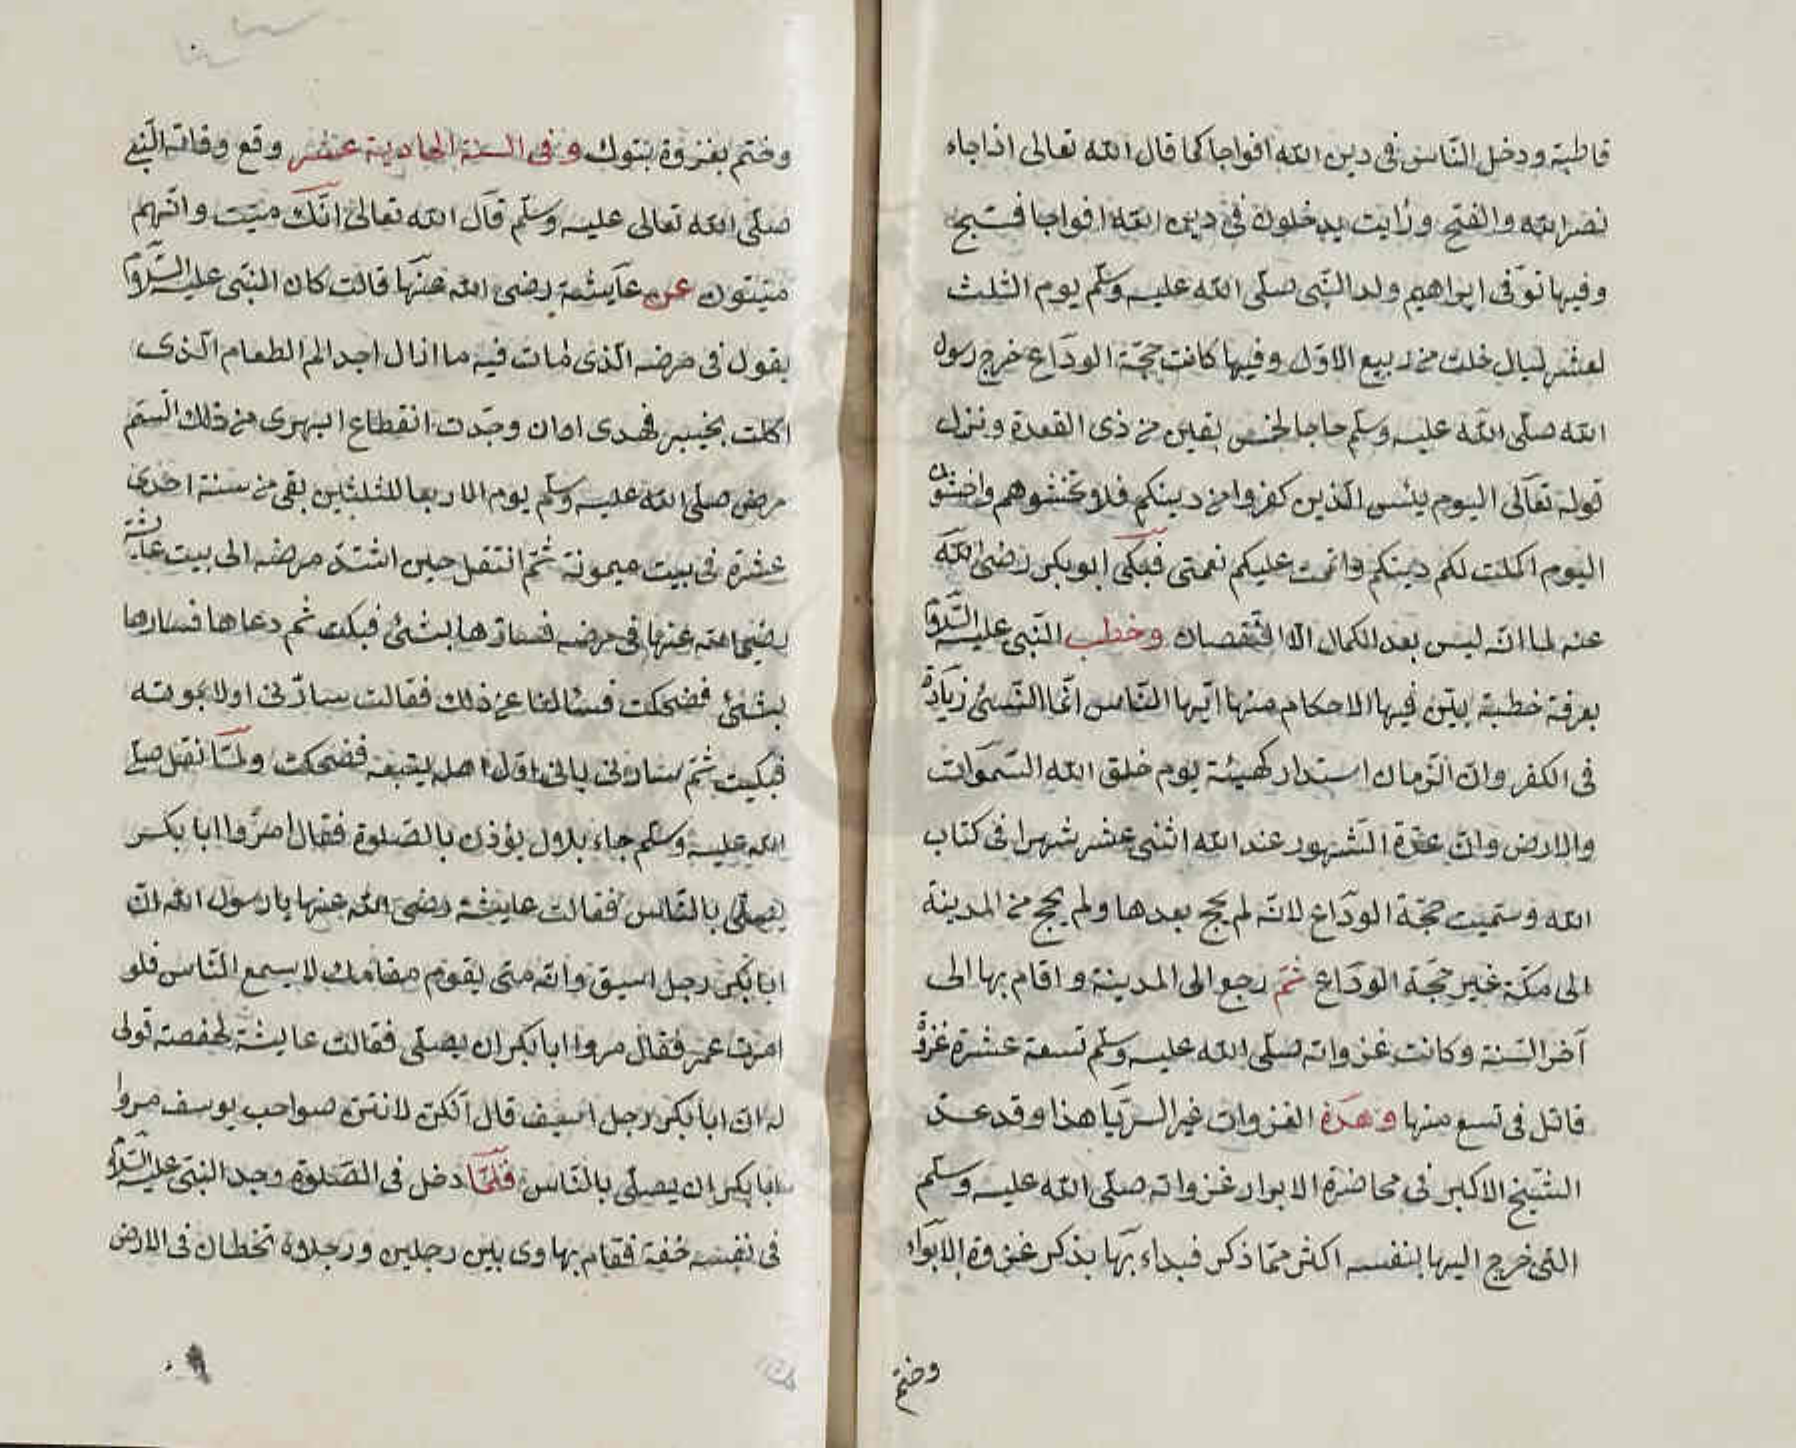 قاطبة ودخل النّاس فى دين الله افواجا كما قال الله تعالى اذا جاء
نصر الله والفتح ورايت يدخلون فى دين الله افواجا فسبح
وفيها توفى ابراهيم ولد النّبى صلّى الله عليه وسلّم يوم الثلث
لعشر ليال خلت من ربيع الاوّل وفيها كانت حجّة الوداع خرج رسول
الله صلّى الله عليه وسلّم حاجا لخمس بقين من ذى القعدة ونزل
قوله تعالى اليوم يئس الّذين كفروا من دينكم فلا تخشوهم واخشون
اليوم اكملت لكم دينكم واتممت عليكم نعمتى فبكى ابو بكر رضى الله
عنه لما انّه ليس بعد الكمال الّا النّقصان وخطب النّبى عليه السّلام
بعرفة خطبة بيّن فيها الاحكام منها ايّها النّاس انّما النّسئ زيادة
فى الكفر وان الزّمان استدار كهيئة يوم خلق الله السّموات
والارض وانّ عدّة الشّهور عند الله اثنى عشر شهرا فى كتاب
الله وسمّيت حجّة الوداع لانّه لم يحج بعدها ولم يحج من المدينة
الى مكّة غير حجّة الوداع ثمّ رجع الى المدينة واقام بها الى
آخر السّنة وكانت غزواته صلّى الله عليه وسلّم تسعة عشرة غزوة
قاتل فى تسع منها وهذه الغزوات غير السرّيا هذا وقد عدّ
الشّيخ الاكبر فى محاضرة الابرار غزواته صلّى الله عليه وسلّم
التى خرج اليها بنفسه اكثر ممّا ذكر فبداء بها بذكر غزوة الابواء
وختم
وختم بغزوة بتوك وفى السنة الحادية عشر وقع وفاة النّبى
صلّى الله تعالى عليه وسلّم قال الله تعالى انّك ميّت وانّهم
ميّتون عن عايشة رضى الله عنها قالت كان النّبى عليه السّلام
يقول فى مرضه الّذى مات فيه ما ازال اجد الم الطعام الّذى
اكلت بخيبر فهدى اوان وجدت انقطاع ابهرى من ذلك السّم
مرض صلّى الله عليه وسلّم يوم الاربعا للثلثين بقى من سنة احدى
عشرة فى بيت ميمونة ثمّ انتقل حين اشتدّ مرضه الى بيت عايشة
رضى الله عنها فى مرضه فسارّها بشئ فبكت ثم دعاها فسارها
بشئ فضحكت فسالنا عن ذلك فقالت سارّنى اولا بموته
فبكيت ثمّ سارنى بانى اوّل اهله يتبعه فضحكت ولمّا ثقل صلى
الله عليه وسلّم جاء بلال يؤذن بالصّلوة فقال امرّوا ابا بكر
يصلّى بالنّاس فقالت عايشة رضى الله عنها يا رسول الله انّ
ابا بكر رجل اسيق وانّه متى يقوم مقامك لا يسمع النّاس فلو
امرت عمر فقال مروا ابا بكر ان يصلّى فقالت عايشة لحفصة قولى
له انّ ابا بكر رجل اسيف قال انّكنّ لانتنّ صواحب يوسف مروا
ابا بكر ان يصلّى بالنّاس فلمّا دخل فى الصّلوة وجد النبىّ عليه السّلام
فى نفسه خفة فقام يهاوى بين رجلين ورجلاه تخطان فى الارض